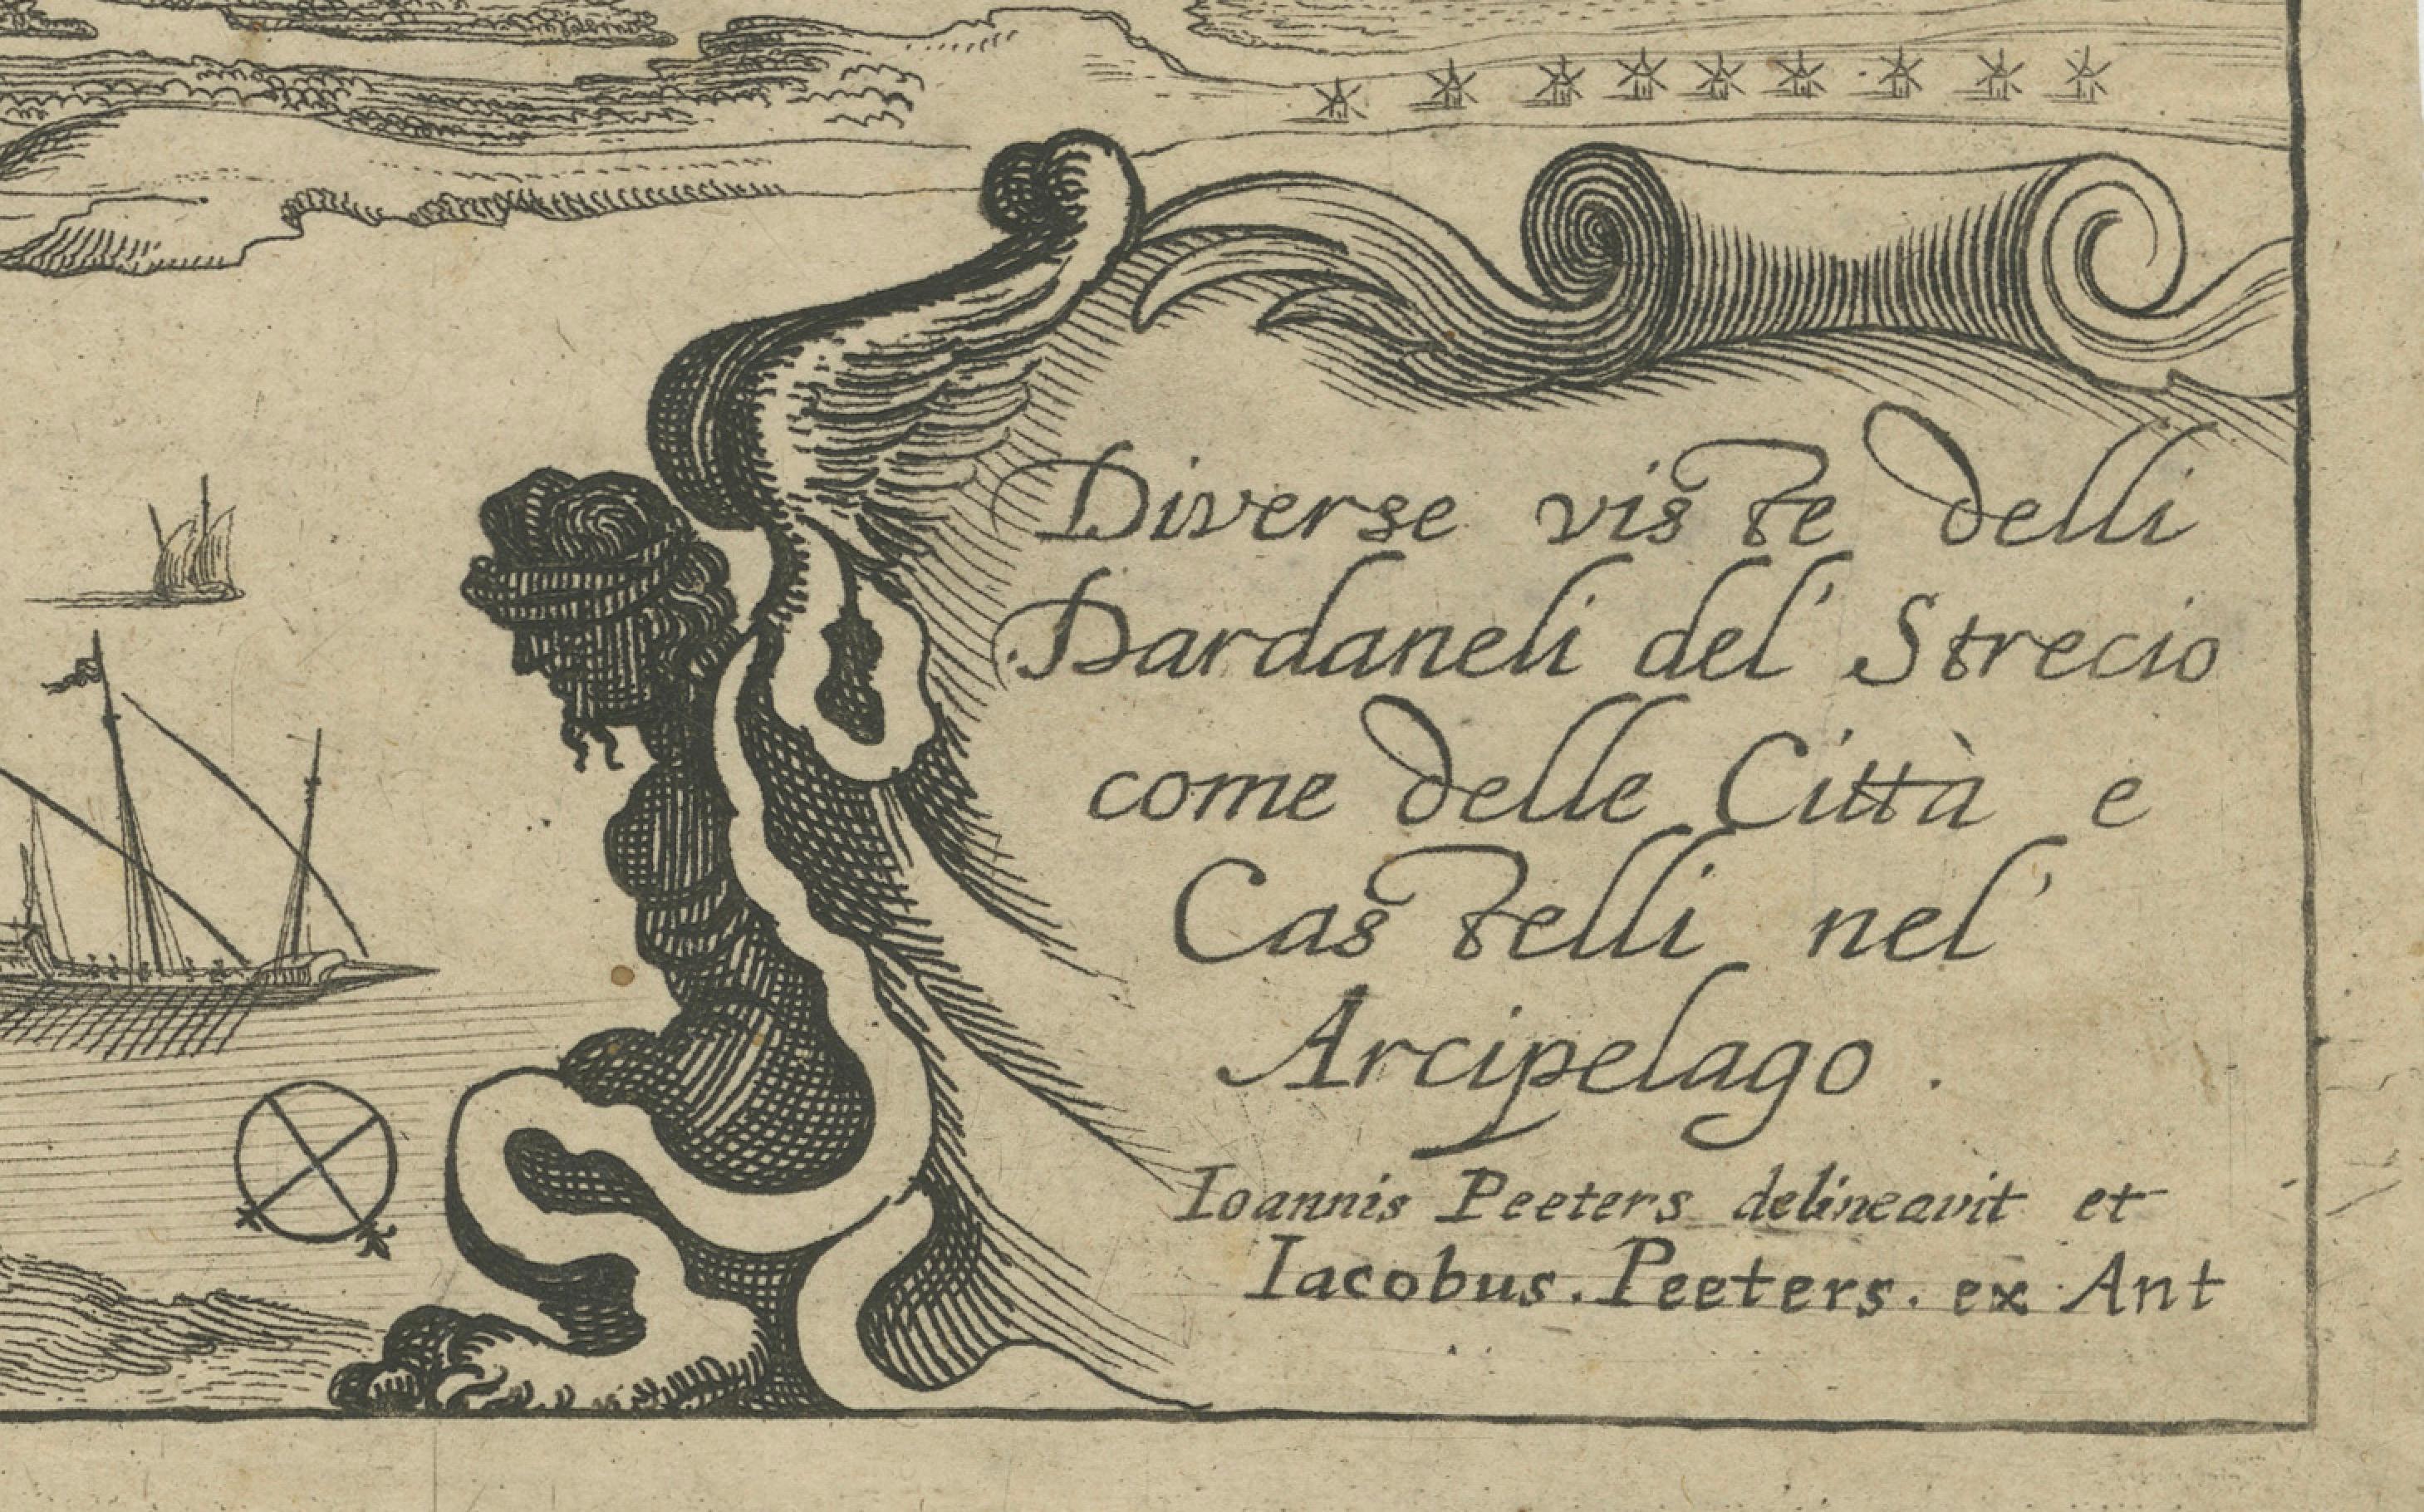 Diverse viste delli
Dardaneli del' Strecio
come delle Città e
Castelli nel'
Arcipelago.
Ioannis Peeters delineavit et
Iacobus. Peeters. ex Ant